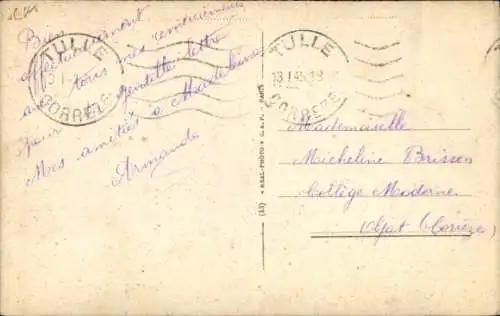 Bien
affectueusement
avec tous mes remerciements
pour ta gentille lettre
Mes amitiés à Madeleine
Armande
TULLE
CORRÈZE
TULLE
13 1 45
CORRÈZE
(33) « REAL-PHOTO » C. A. P. - PARIS
Mademoiselle
Micheline Brisson
Collège Moderne
(Corrèze)